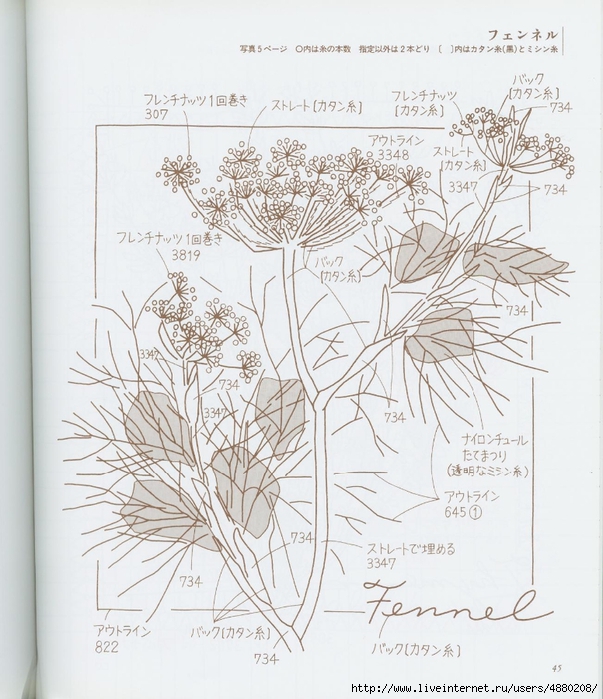 フェンネル
写真5ページ　〇内は糸の本数　指定以外は2本どり　［　］内はカタン糸(黒)とミシン糸
フレンチナッツ1回巻き
307
ストレート［カタン糸］
フレンチナッツ
［カタン糸］
バック
［カタン糸］
734
アウトライン
3348
ストレート
［カタン糸］
3347
734
フレンチナッツ1回巻き
3819
バック
［カタン糸］
734
3347
734
3347
734
ナイロンチュール
たてまつり
(透明なミシン糸)
アウトライン
645①
734
ストレートで埋める
3347
734
Fennel
アウトライン
822
バック［カタン糸］
734
バック［カタン糸］
45
http://www.liveinternet.ru/users/4880208/